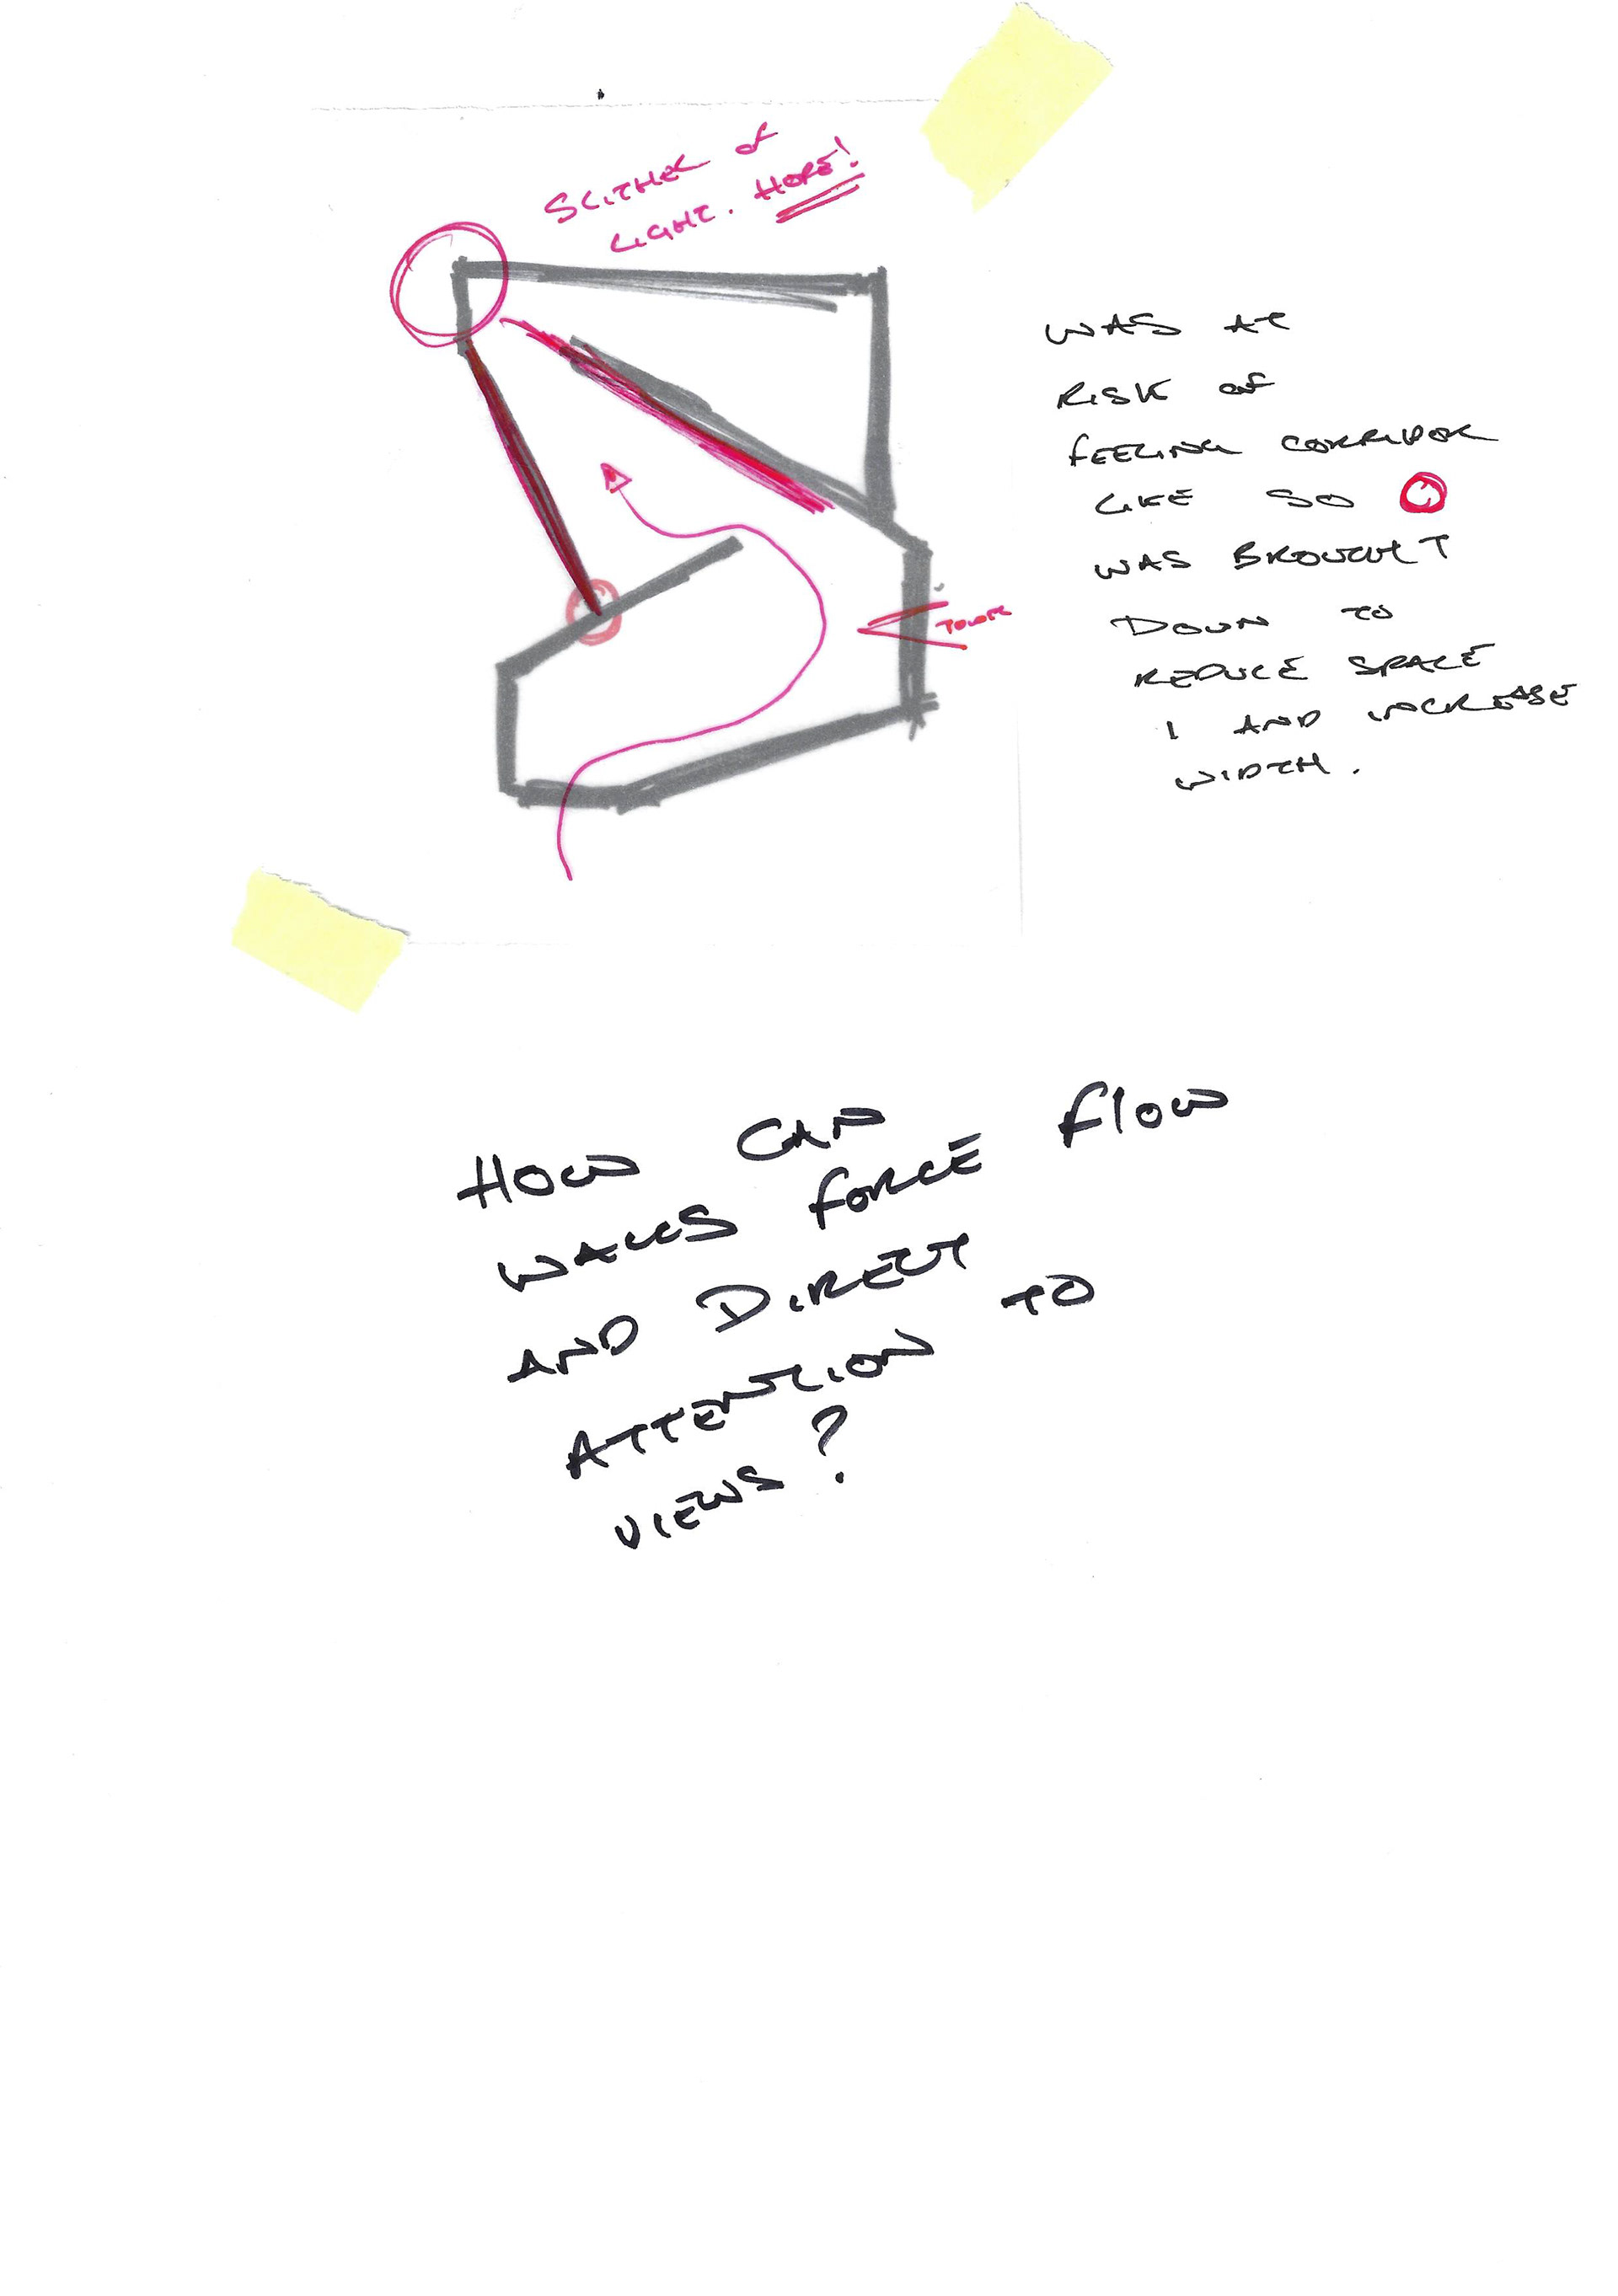 SLITHER of
LIGHT. HOPE!
WAS AT
RISK of
fEELING CORRIDOR
LIKE SO
WAS BROUGHT
DOWN TO
REDUCE SPACE
1 AND INCREASE
WIDTH.
HOW CAN
WALLS fORCE flOW
AND DIRECT
ATTENTION TO
VIEWS?